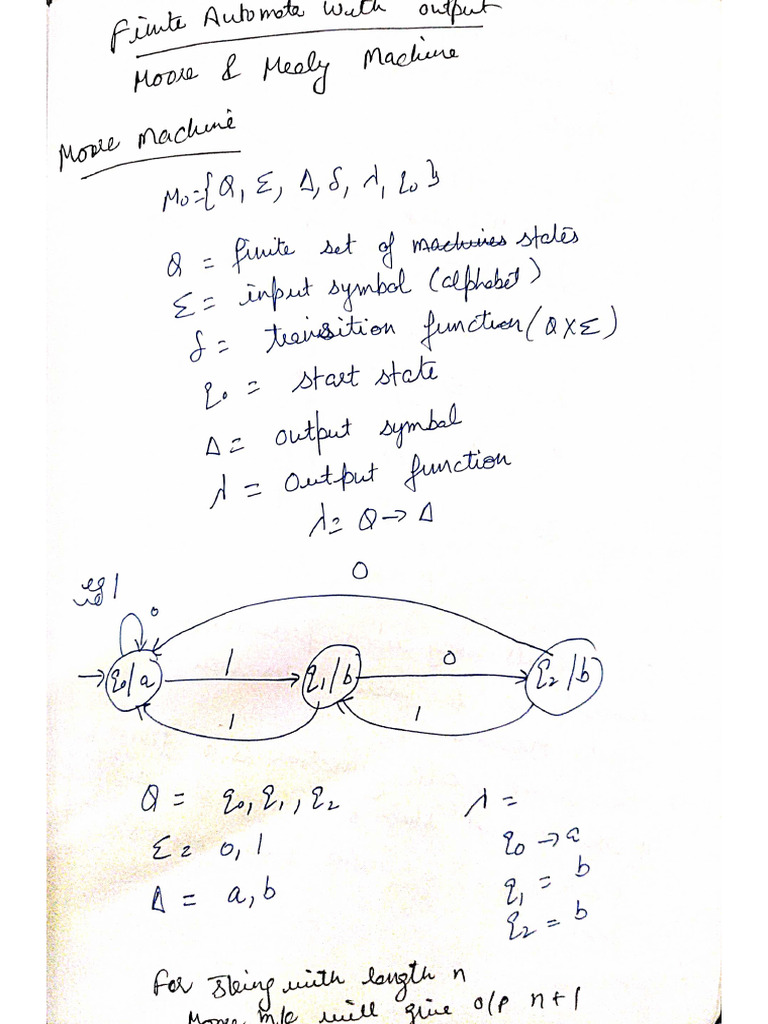 Finite Automata with output
Moore & Mealy Machine
Moore Machine
M₀={Q, Σ, Δ, δ, λ, q₀}
Q = finite set of machines states
Σ = input symbol (alphabet)
δ = transition function (Q×Σ)
q₀ = start state
Δ = output symbol
λ = output function
λ = Q → Δ
eg 1
0
0
q₀/a 1 q₁/b 0 q₂/b
1 1
Q = q₀, q₁, q₂ λ =
q₀ → a
Σ = 0, 1
q₁ = b
Δ = a, b
q₂ = b
For string with length n
Moore m/c will give o/p n+1